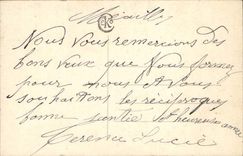 Nous Vous remercions des
bons veux que Vous formez
pour nous A Vous
souhaitons les réciproques
bonne santée et heureuse année
Lucie